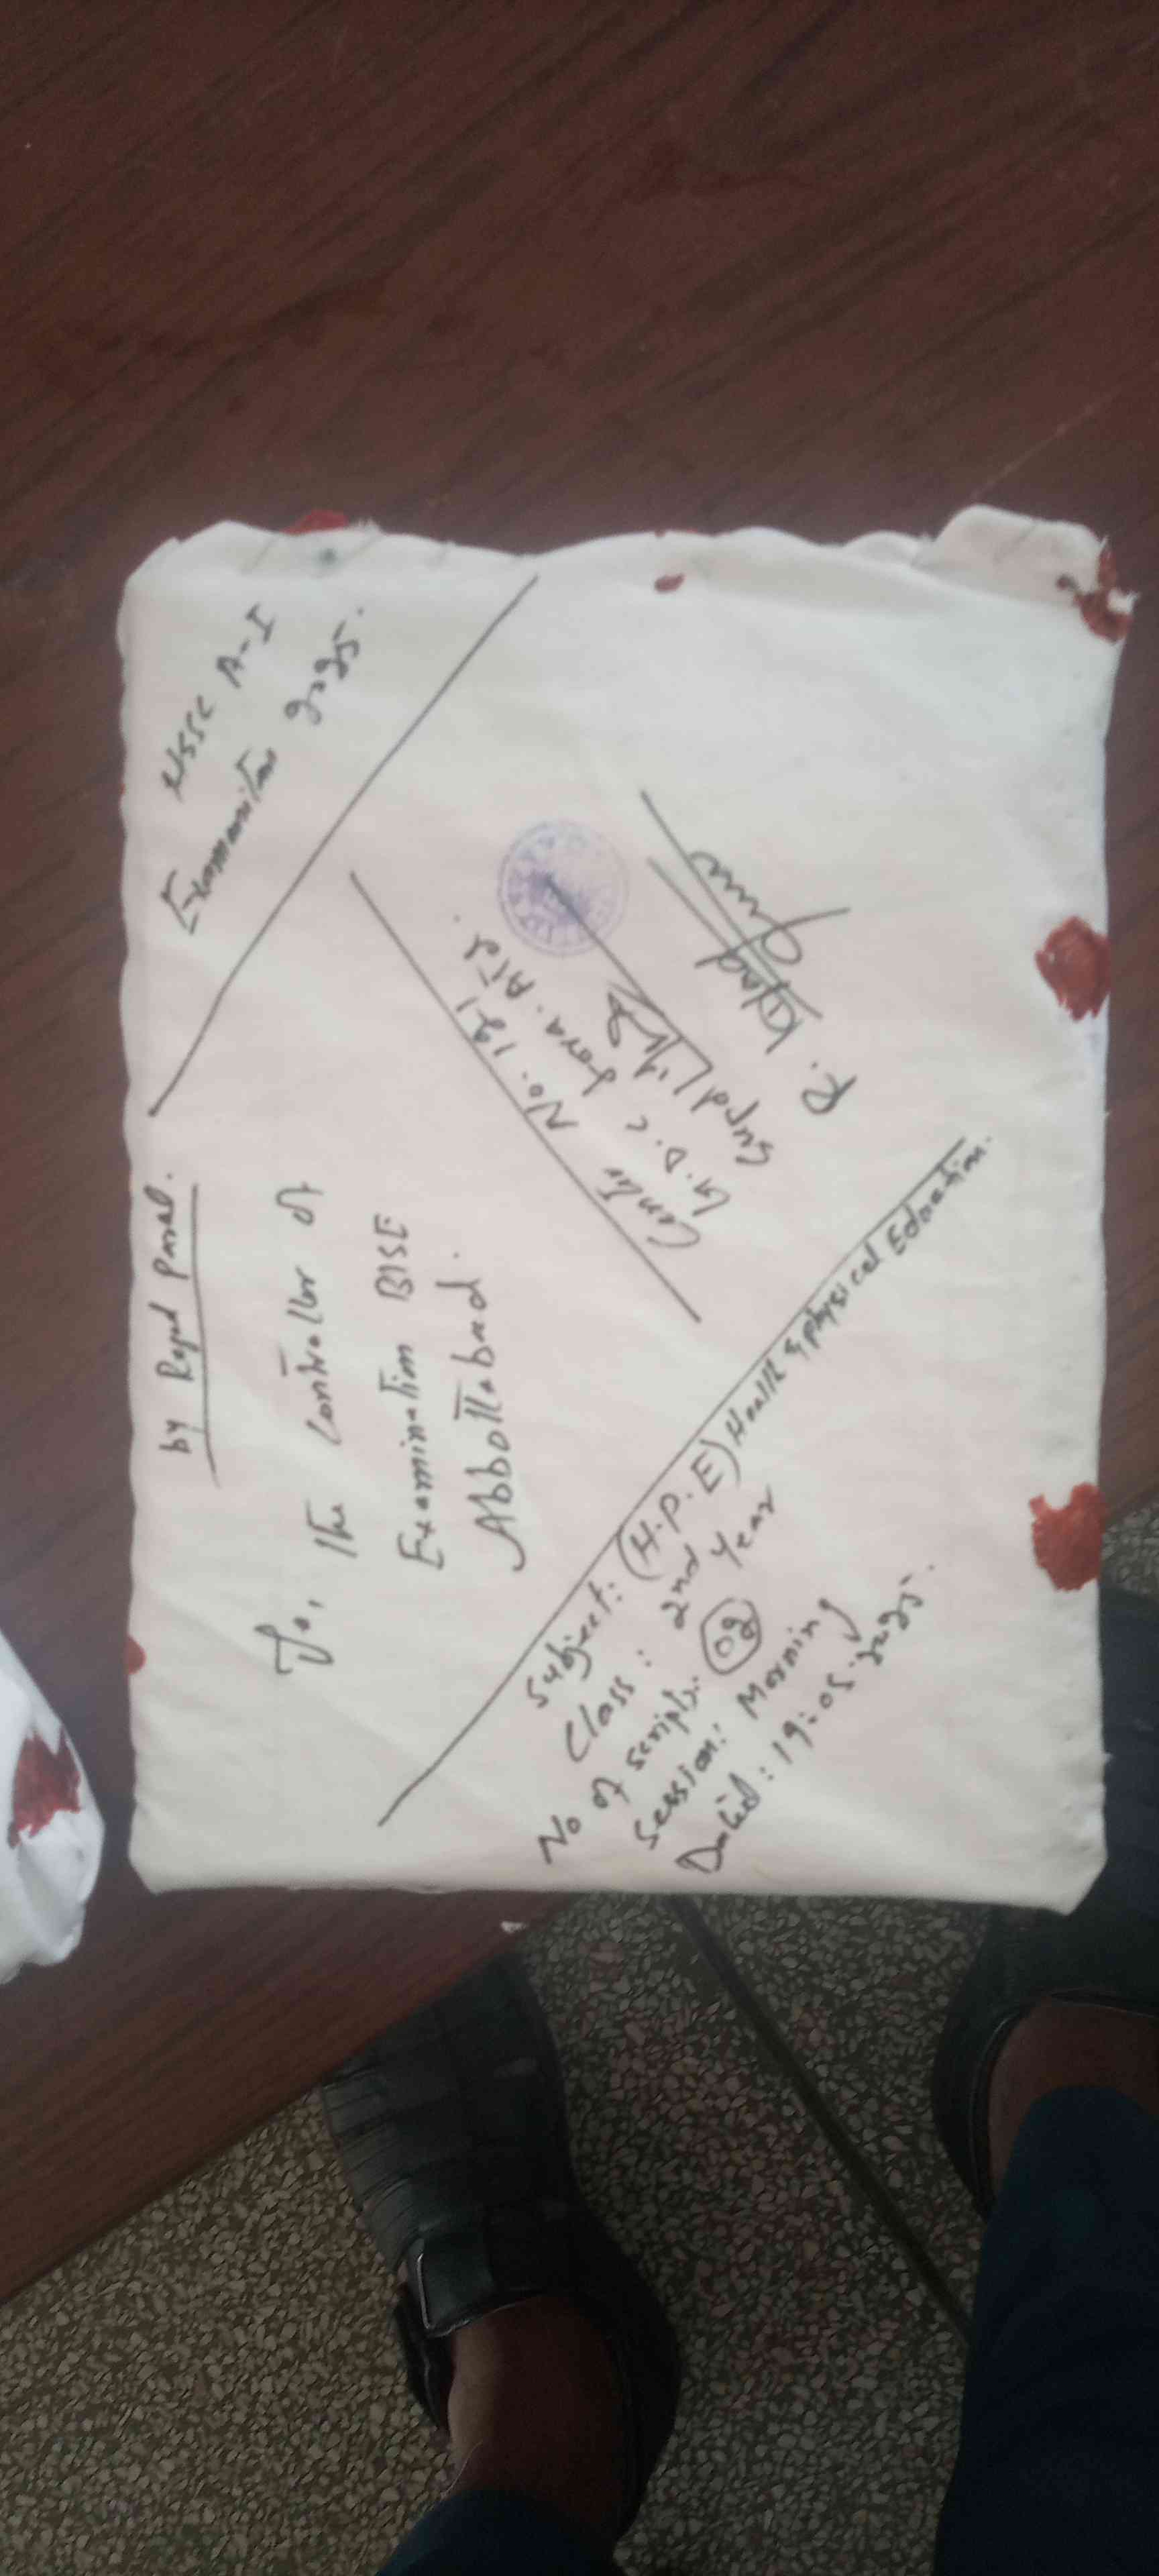 by Regd Parcel.
HSSC A-I
Examination 2025.
To, The Controller of
Examination BISE
Abbottabad.
Center No. 121
G.D.C
Supdt
R.
Subject: (H.P.E) Health & physical Education.
Class: 2nd Year
No of scripts: 02
Session: Morning
Dated: 19-05-2025.